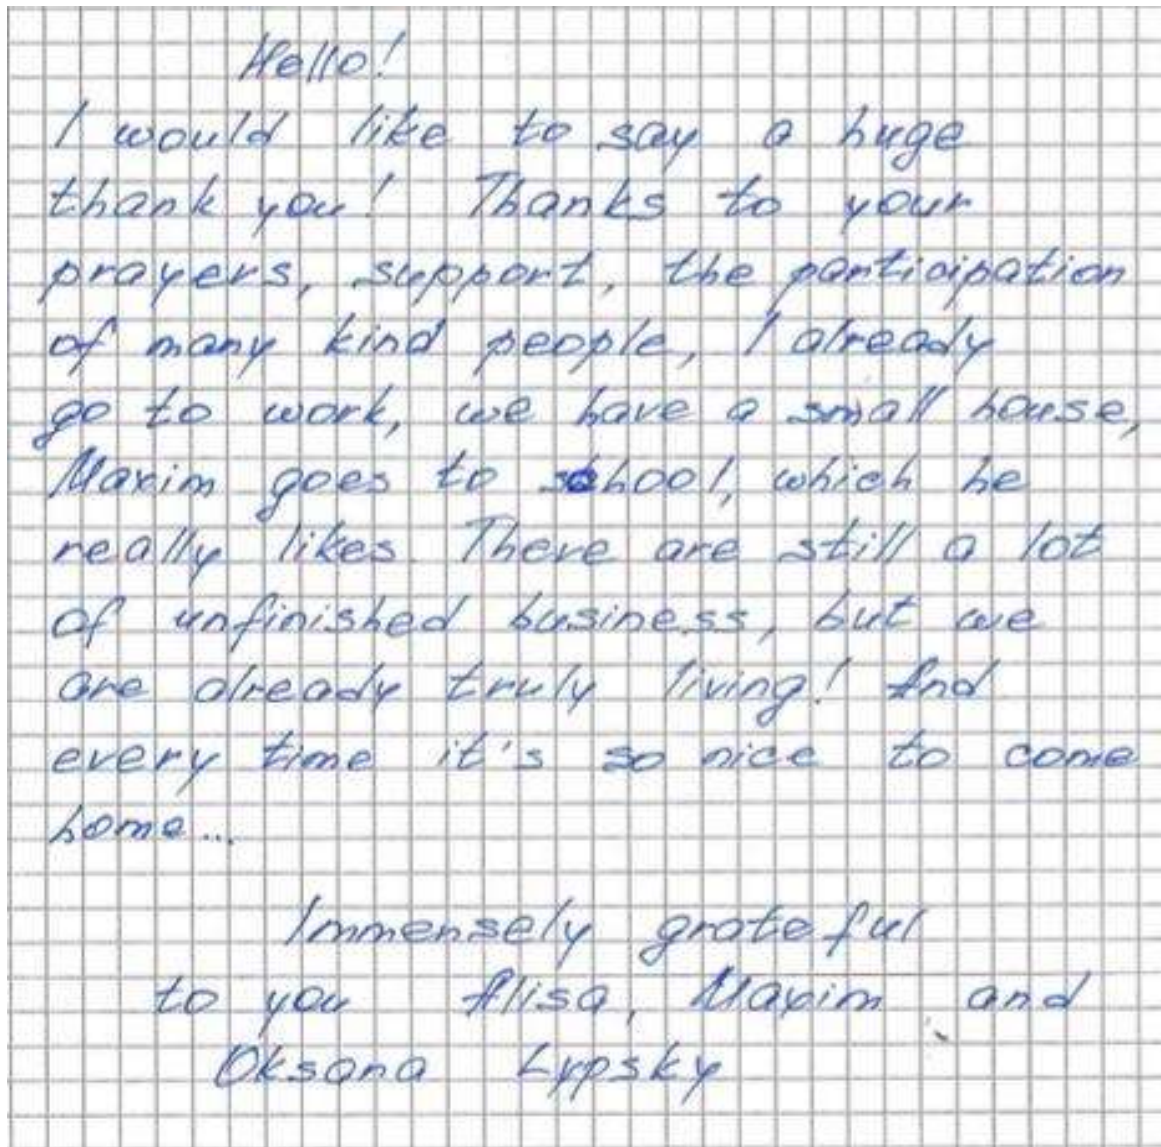 Hello!
I would like to say a huge
thank you! Thanks to your
prayers, support, the participation
of many kind people, I already
go to work, we have a small house,
Maxim goes to school, which he
really likes. There are still a lot
of unfinished business, but we
are already truly living! And
every time it's so nice to come
home...
Immensely grateful
to you Alisa, Maxim and
Oksana Lypsky